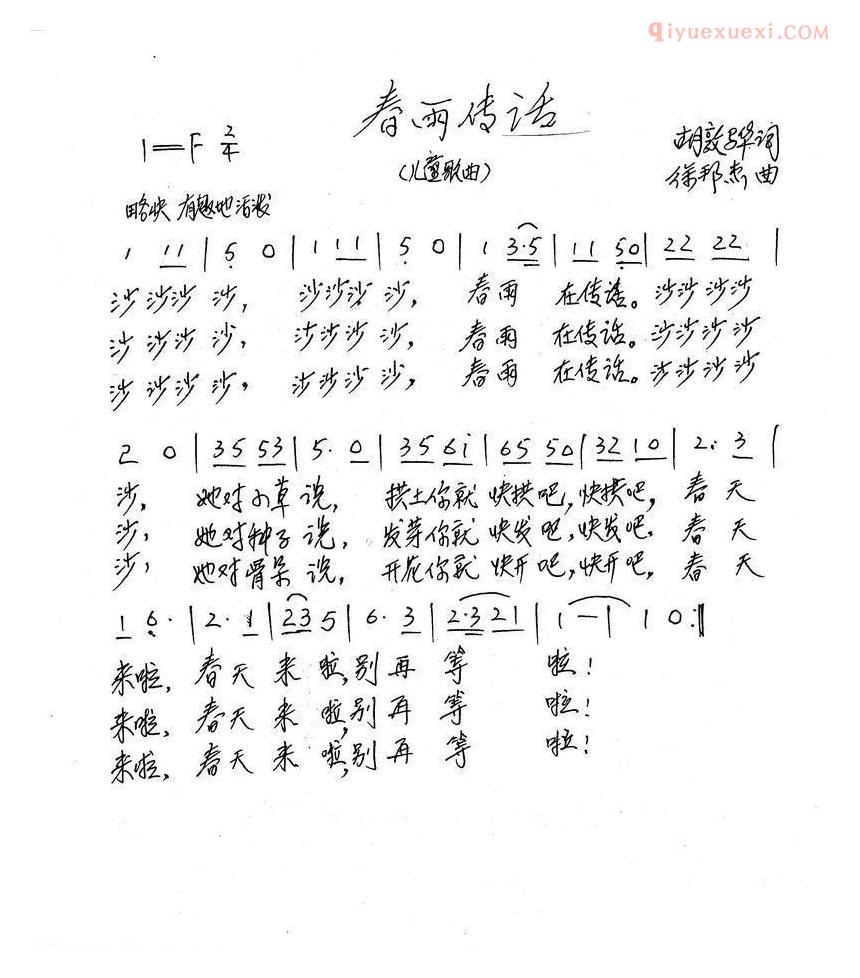 qiyuexuexi.COM
春雨传话
(儿童歌曲)
1=F 2/4
胡敦华词
徐邦杰曲
略快 有趣地 活泼
1 11 | 5 0 | 1 11 | 5 0 | 1 3·5 | 11 50 | 22 22 |
沙沙沙 沙, 沙沙沙 沙, 春雨 在传话。沙沙沙沙
沙沙沙 沙, 沙沙沙 沙, 春雨 在传话。沙沙沙沙
沙沙沙 沙, 沙沙沙 沙, 春雨 在传话。沙沙沙沙
2 0 | 35 53 | 5· 0 | 35 6i | 65 50 | 32 10 | 2· 3 |
沙, 她对小草 说, 拱土你就 快拱吧,快拱吧, 春天
沙, 她对种子 说, 发芽你就 快发吧,快发吧, 春天
沙, 她对骨朵 说, 开花你就 快开吧,快开吧, 春天
1 6· | 2· 1 | 23 5 | 6· 3 | 2·3 21 | 1 — | 1 0 :||
来啦, 春天 来 啦,别再 等 啦!
来啦, 春天 来 啦,别再 等 啦!
来啦, 春天 来 啦,别再 等 啦!